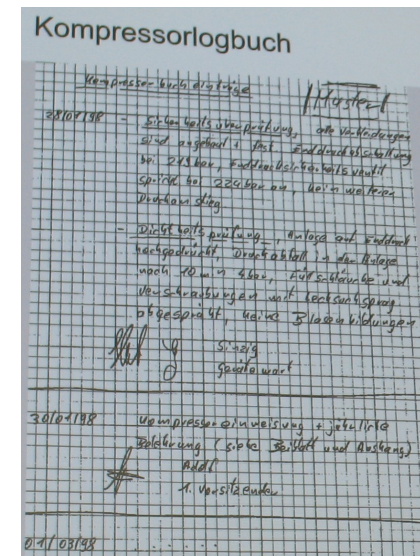 Kompressorlogbuch
Kompressorbucheinträge
Muster!
28/01/98 - Sicherheitsüberprüfung, alle Verbindungen
sind angebaut + fest. Enddruckabschaltung
bei 219 bar, Enddrucksicherheitsventil
spricht bei 224 bar an, kein weiterer
Druckanstieg
- Dichtheitsprüfung, Anlage auf Enddruck
hochgedrückt, Druckabfall in der Anlage
nach 10 min 4 bar, Füllschläuche und
Verschraubungen mit Lecksuchspray
abgesprüht, keine Blasenbildungen
Sinzig
Gerätewart
30/01/98 Kompressoreinweisung + jährliche
Belehrung (siehe Beiblatt und Aushang)
1. Vorsitzender
01/03/98 . . . . . .